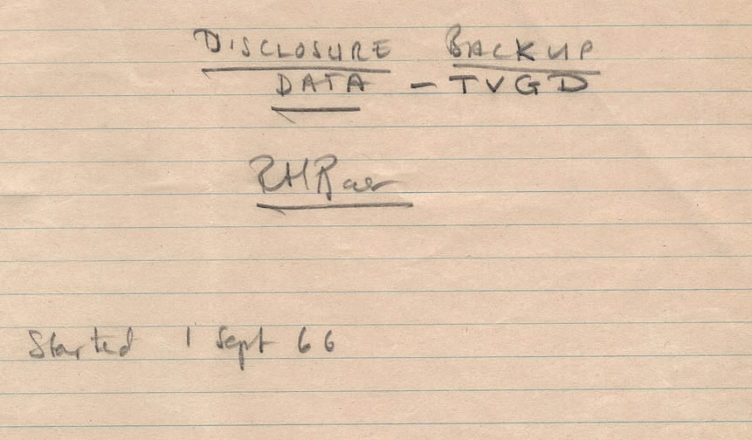 DISCLOSURE BACKUP
DATA - TVGD
RHBaer
Started 1 Sept 66